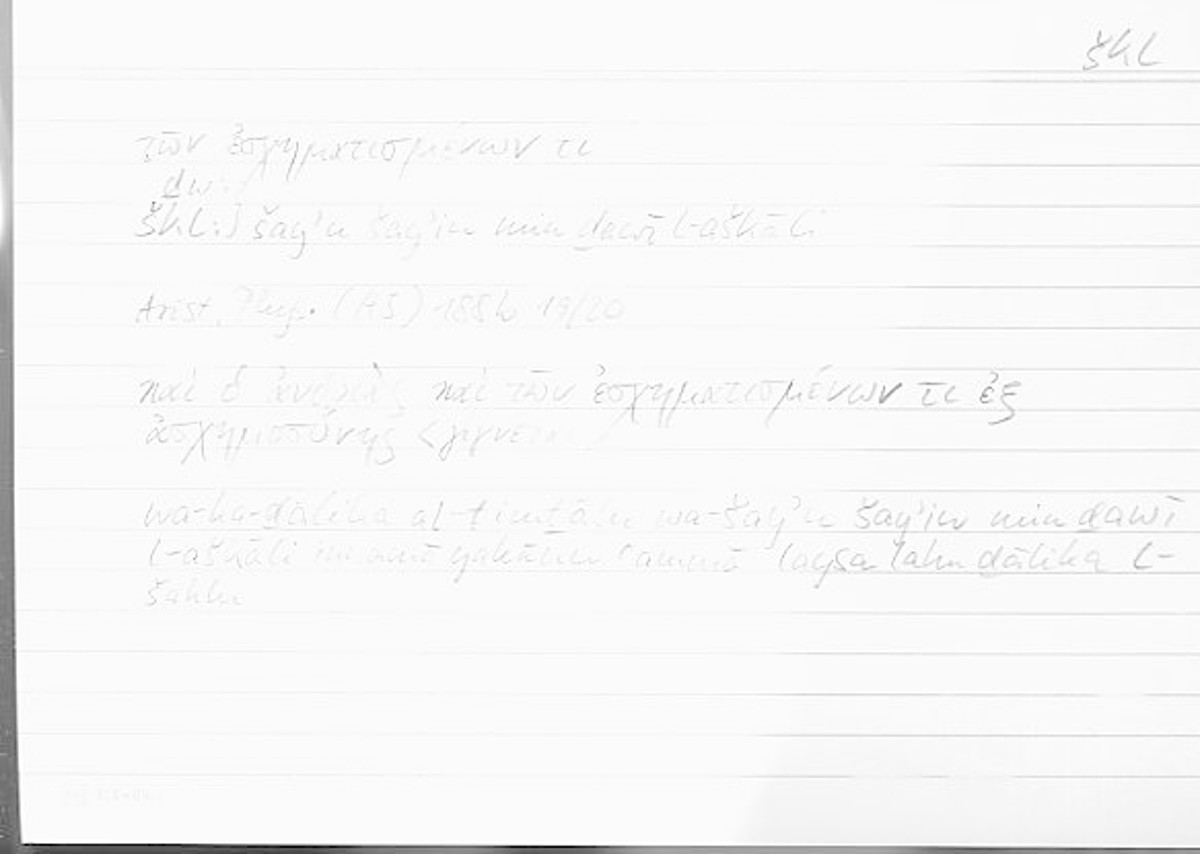 škl
τῶν ἐσχηματισμένων τι
ḏw
škl:] šay'u šay'in min ḏawī l-aškāli
Arist. Phys. (A5) 188b 19/20
καὶ ὁ ἀνδριὰς καὶ τῶν ἐσχηματισμένων τι ἐξ
ἀσχημοσύνης
wa-ka-ḏālika al-timṯālu wa-šay'u šay'in min ḏawī
l-aškāli innamā yakūnu ʿammā laysa lahu ḏālika l-
šaklu